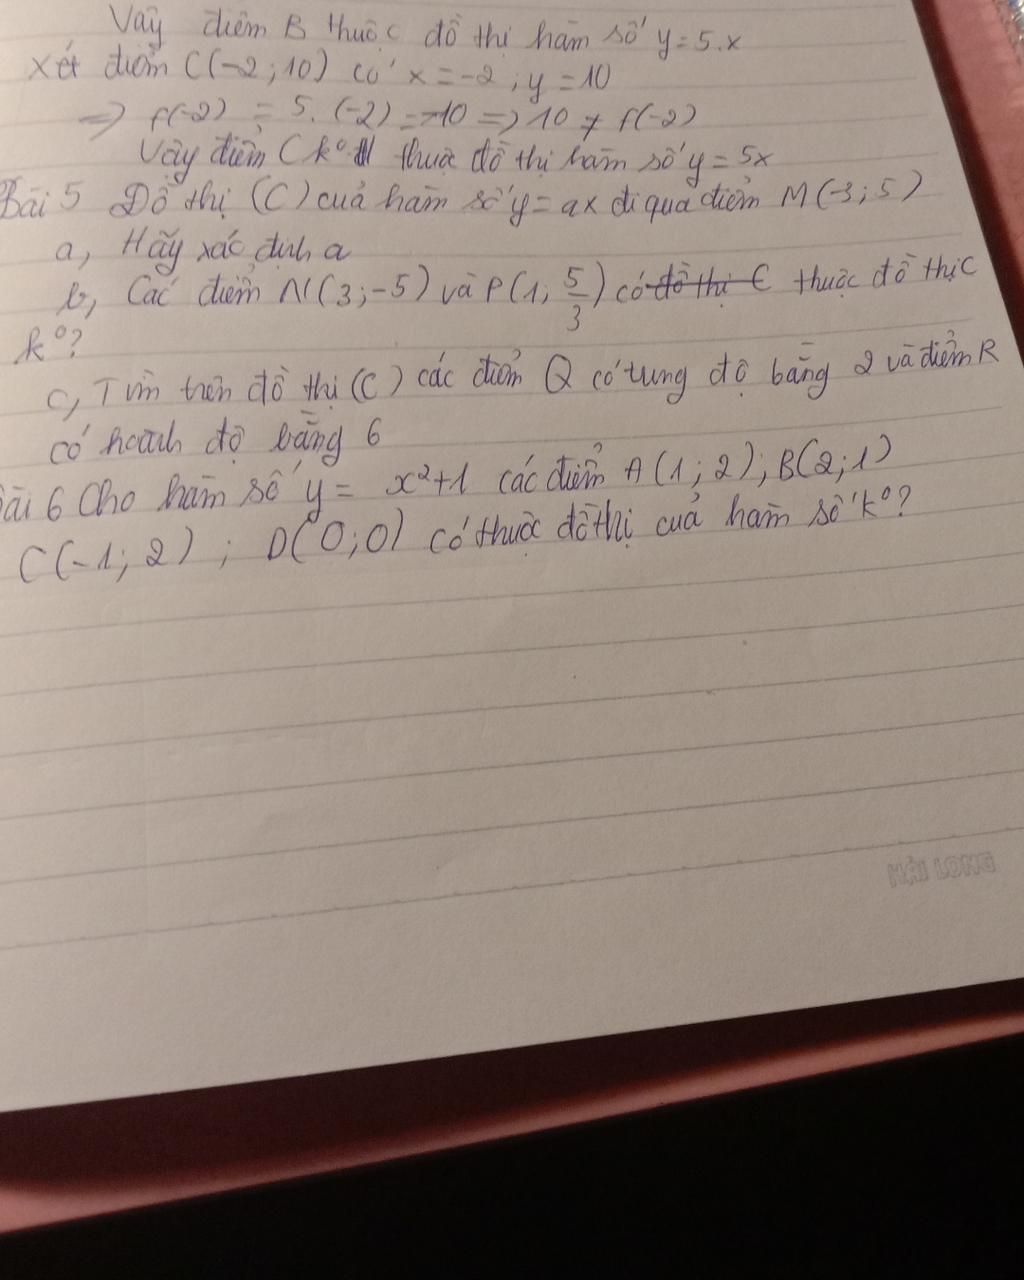 Vậy điểm B thuộc đồ thị hàm số y = 5.x
Xét điểm C(-2; 10) có x = -2 ; y = 10
=> f(-2) = 5. (-2) = -10 => 10 ≠ f(-2)
Vậy điểm C k° thuộc đồ thị hàm số y = 5x
Bài 5 Đồ thị (C) của hàm số y = ax đi qua điểm M(-3; 5)
a, Hãy xác định a
b, Các điểm N(3; -5) và P(1; 5/3) có đồ thị C thuộc đồ thị C
k°?
c, Tìm trên đồ thị (C) các điểm Q có tung độ bằng 2 và điểm R
có hoành độ bằng 6
Bài 6 Cho hàm số y = x²+1 các điểm A(1; 2); B(2; 1)
C(-1; 2) ; D(0; 0) có thuộc đồ thị của hàm số k°?
HẢI LONG